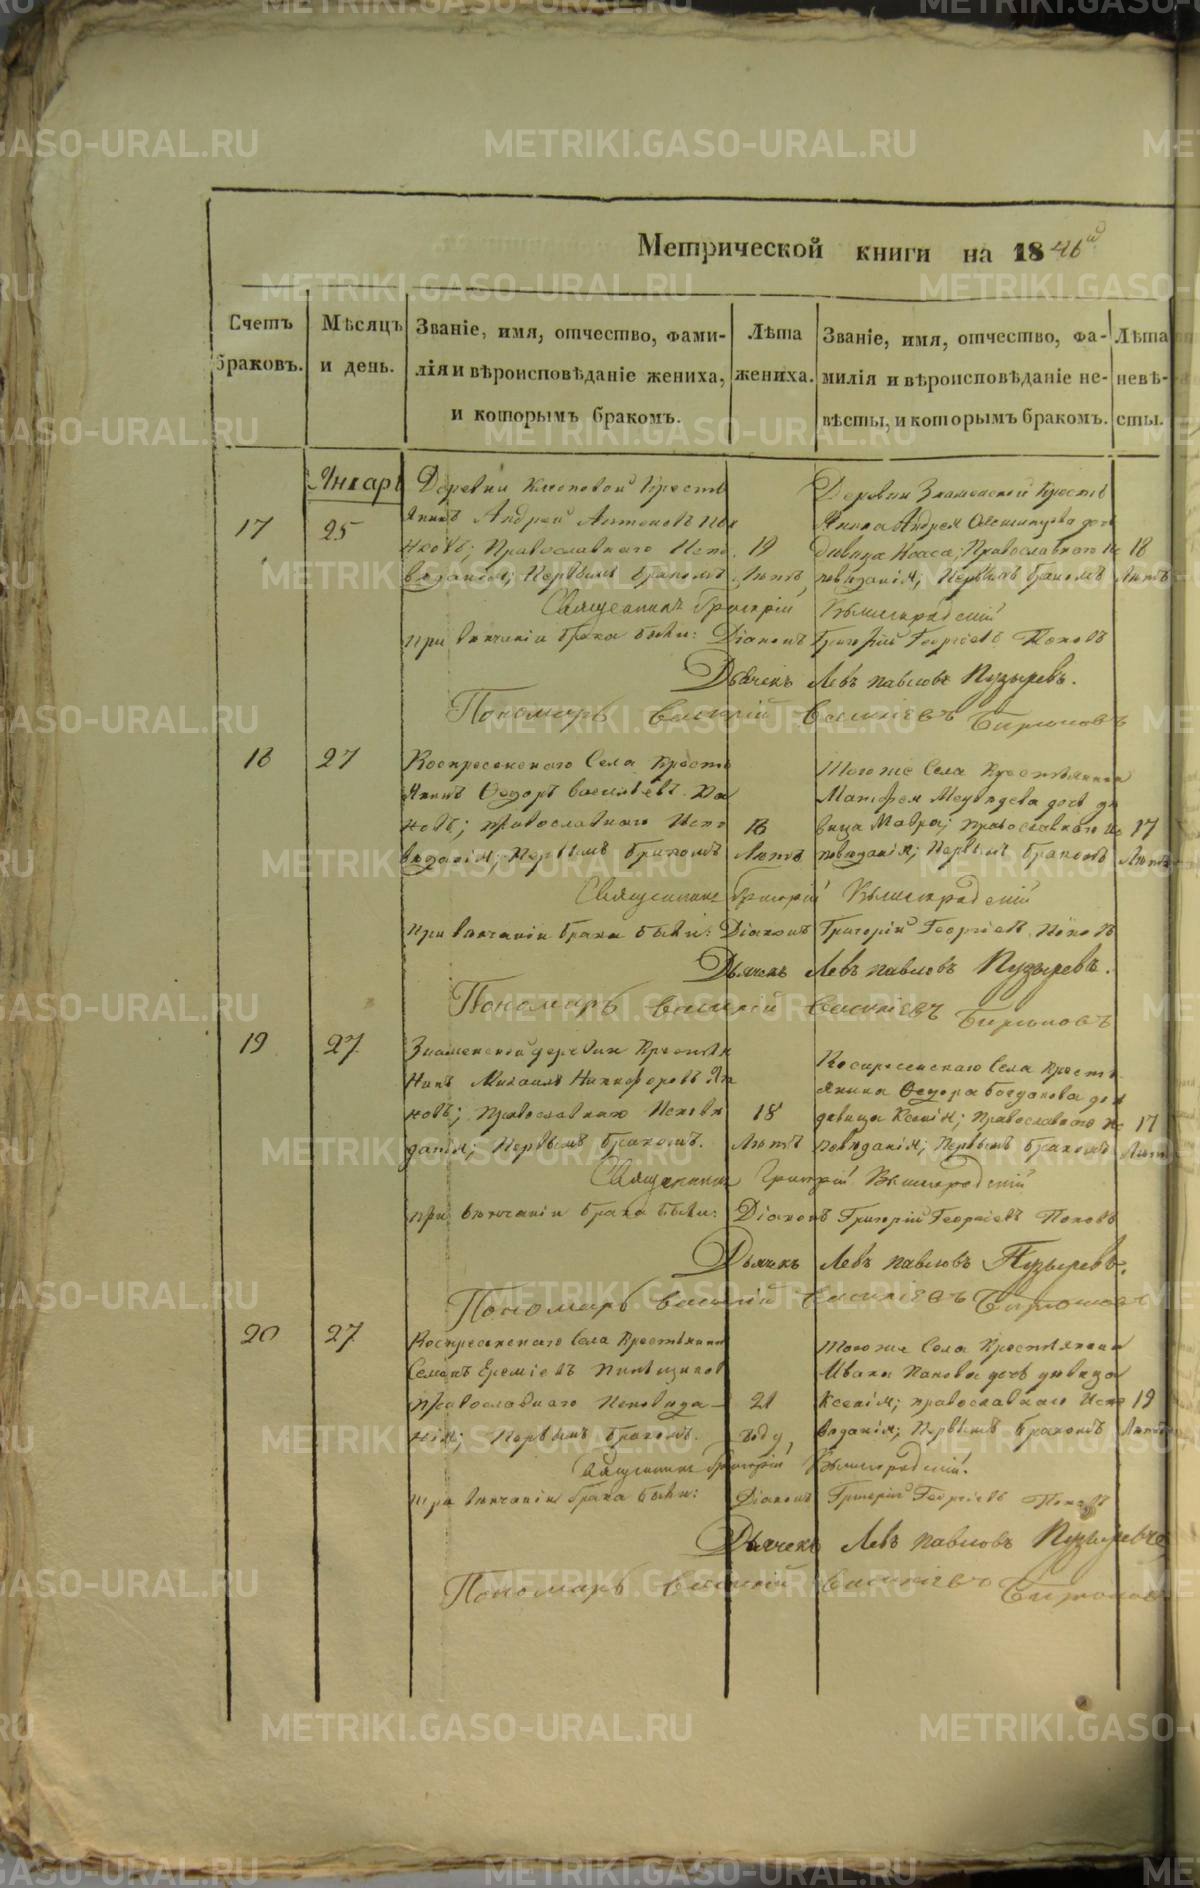 Метрической книги на 1846й
Счетъ браковъ.
Мѣсяцъ и день.
Званіе, имя, отчество, фами-
лія и вѣроисповѣданіе жениха,
и которымъ бракомъ.
Лѣта
жениха.
Званіе, имя, отчество, фа-
милія и вѣроисповѣданіе не-
вѣсты, и которымъ бракомъ.
Лѣта
невѣ-
сты.
Январь
17
25
Деревни Клоповой Кресть
янинъ Андрей Антоновъ
Православнаго Испо
вѣданія; Первымъ бракомъ
19
Лѣтъ
Деревни Знаменской Кресть
янина Андрея дочь
Дѣвица Православнаго Ис
повѣданія; Первымъ бракомъ
18
Лѣтъ
Священникъ Григорій Вышегродскій
при вѣнчаніи брака были: Діаконъ Григорій Георгіевъ Поповъ
Дьячекъ Левъ Павловъ Пузыревъ.
Пономарь Василій Василіевъ Бирюковъ
18
27
Воскресенскаго Села Кресть
янинъ Ѳедоръ Васильевъ Па
новъ; Православнаго Испо
вѣданія; Первымъ бракомъ
18
Лѣтъ
Тогоже Села Крестьянина
Матфея Медвѣдева дочь дѣ
вица Мавра; Православнаго Ис
повѣданія; Первымъ бракомъ
17
Лѣтъ
Священникъ Григорій Вышегродскій
При вѣнчаніи брака были: Діаконъ Григорій Георгіевъ Поповъ
Дьячекъ Левъ Павловъ Пузыревъ.
Пономарь Василій Василіевъ Бирюковъ
19
27
Знаменской деревни Крестьян
нинъ Михаилъ Никифоровъ Па
новъ; Православнаго Исповѣ
данія; Первымъ бракомъ.
18
Лѣтъ
Воскресенскаго Села Кресть
янина Ѳедора Богданова доч
дѣвица Ксенія; Православнаго Ис
повѣданія; Первымъ бракомъ
17
Лѣтъ
Священникъ Григорій Вышегродскій
при вѣнчаніи брака были: Діаконъ Григорій Георгіевъ Поповъ
Дьячекъ Левъ Павловъ Пузыревъ.
Пономарь Василій Василіевъ Бирюковъ
20
27
Воскресенскаго Села Крестьянинъ
Семенъ Еремѣевъ
Православнаго Исповѣда-
нія; Первымъ бракомъ.
21
году
Тогоже Села Крестьянина
Ивана Панова дочь дѣвица
Ксенія; православнаго Испо
вѣданія; Первымъ бракомъ
19
Лѣтъ
Священникъ Григорій Вышегродскій.
При вѣнчаніи брака были: Діаконъ Григорій Георгіевъ Поповъ
Дьячекъ Левъ Павловъ Пузыревъ
Пономарь Василій Василіевъ Бирюковъ
METRIKI.GASO-URAL.RU